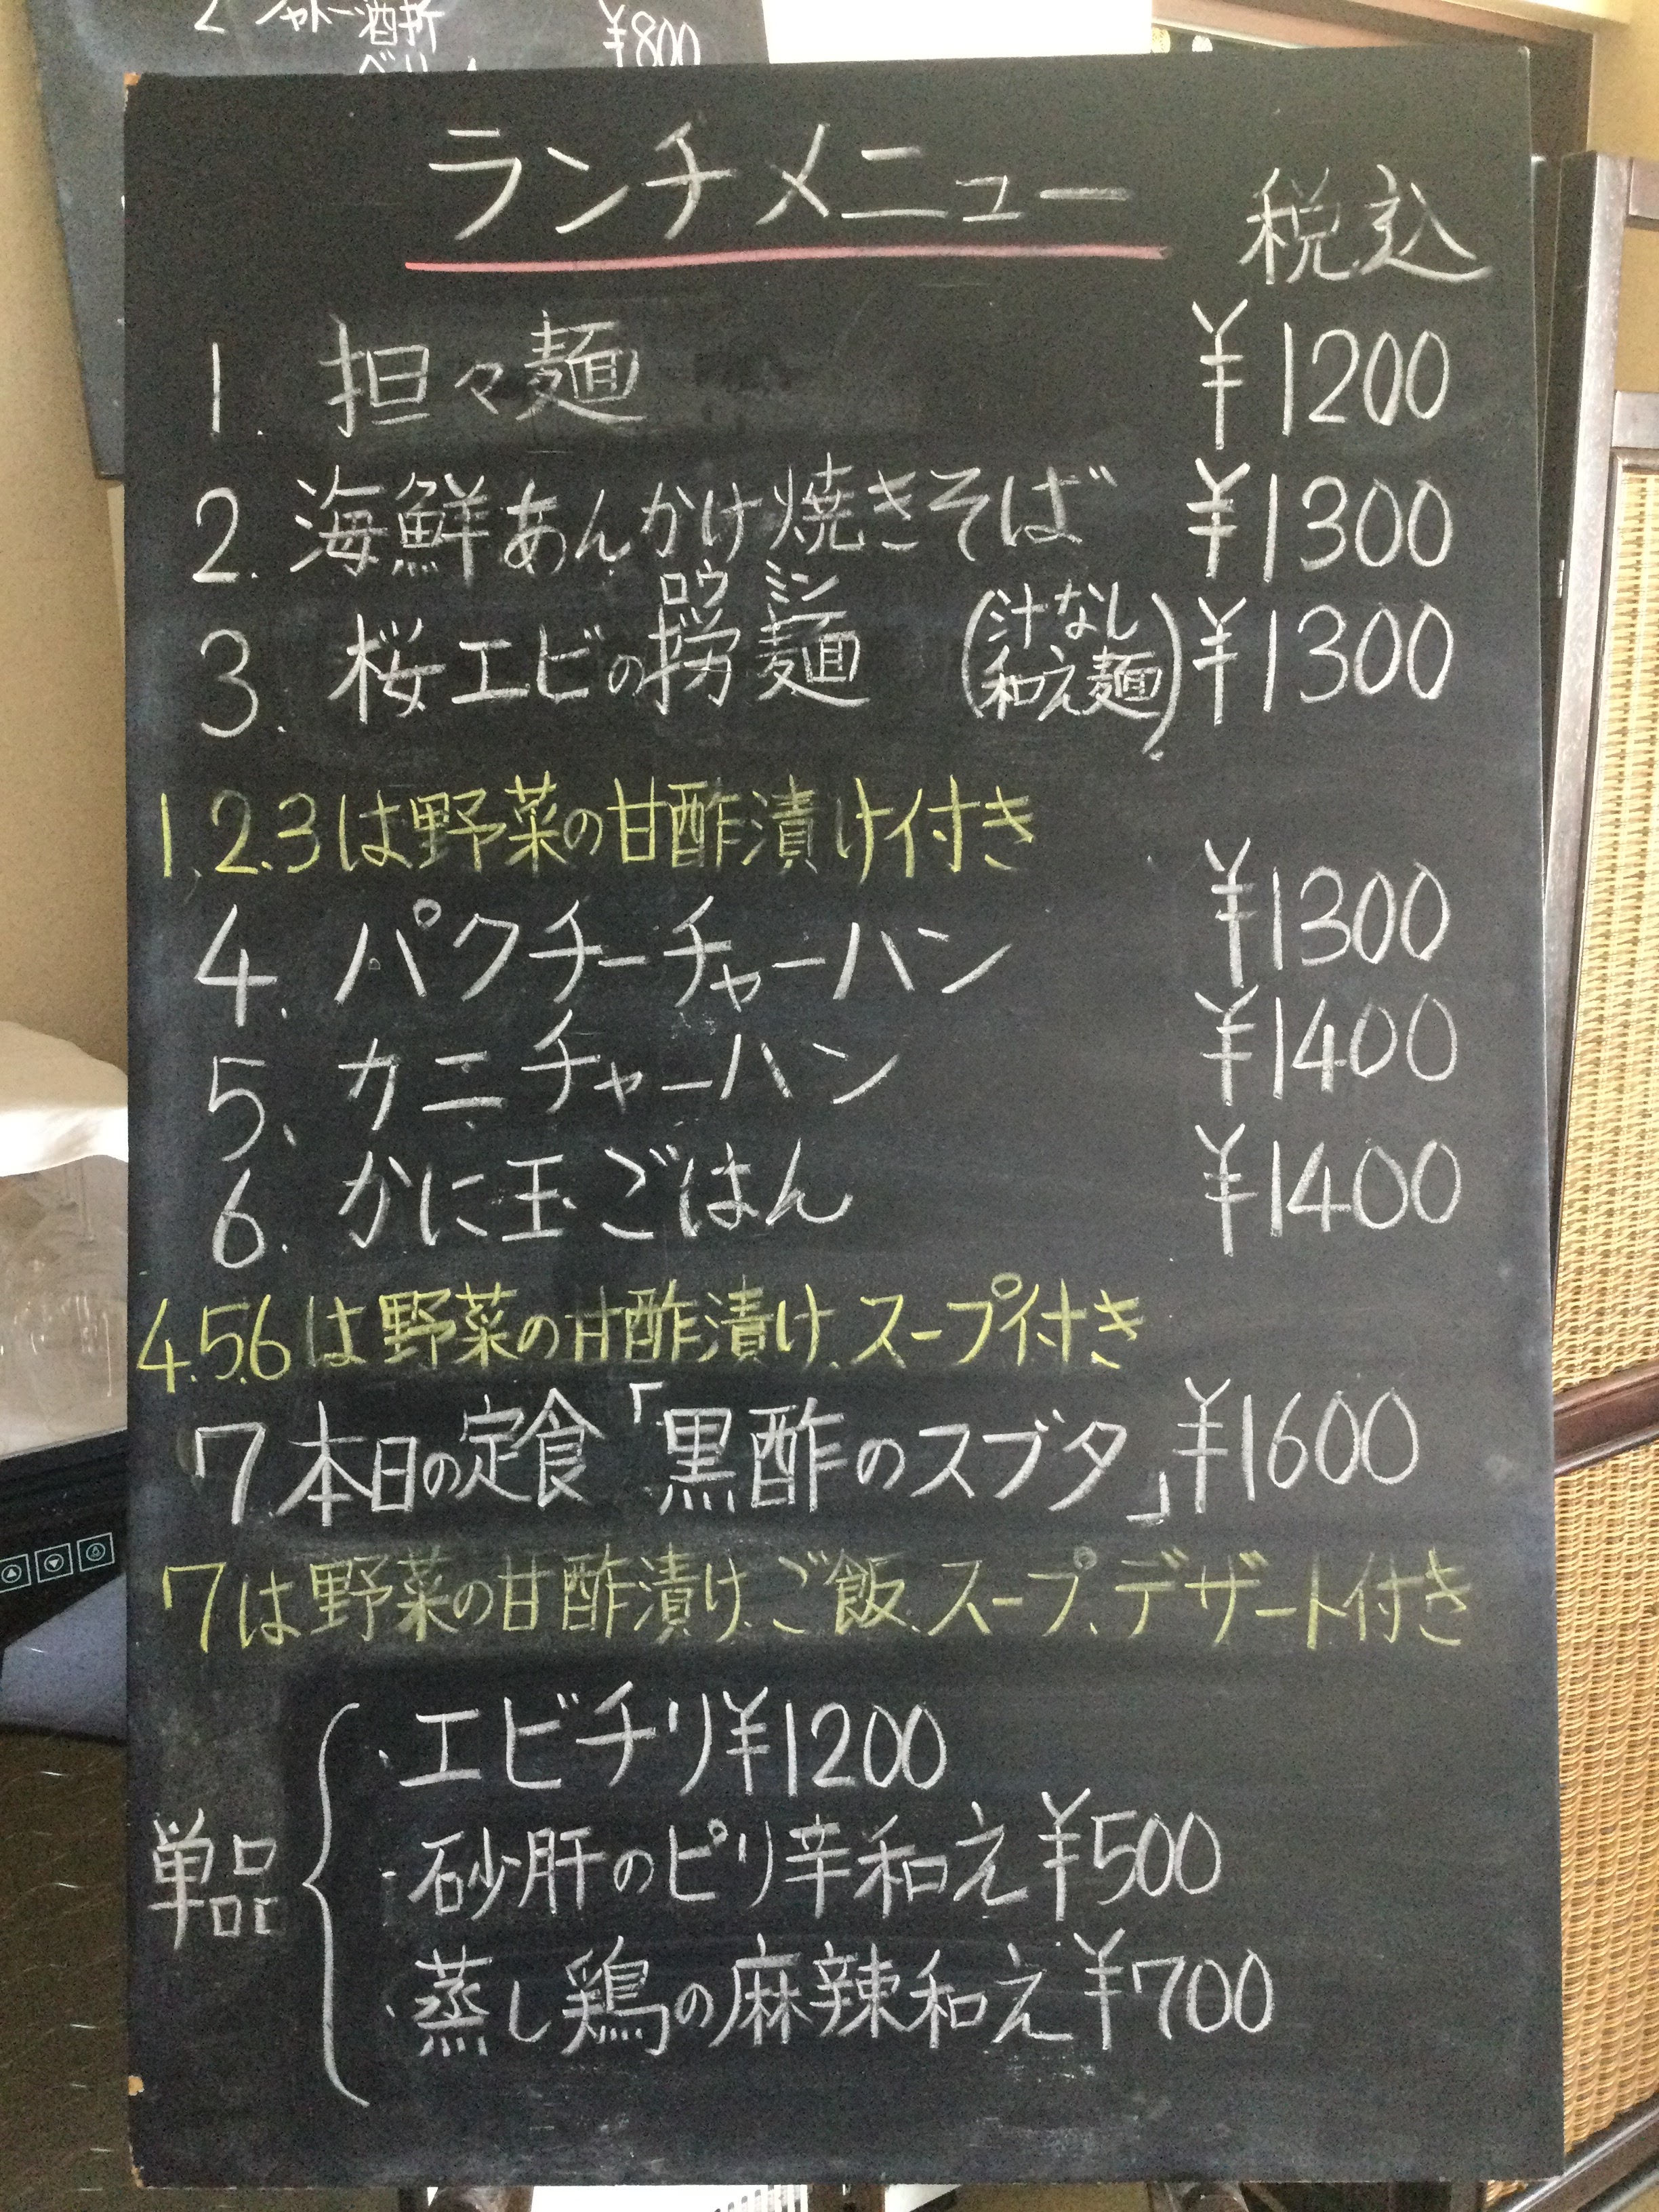 2 シャトー酒折 ¥800
ランチメニュー 税込
1. 担々麺 ¥1200
2. 海鮮あんかけ焼きそば ¥1300
ロウ ミン
3. 桜エビの撈麺 (汁なし和え麺) ¥1300
1.2.3は野菜の甘酢漬け付き
4. パクチーチャーハン ¥1300
5. カニチャーハン ¥1400
6. かに玉ごはん ¥1400
4.5.6は野菜の甘酢漬け、スープ付き
7.本日の定食「黒酢のスブタ」¥1600
7は野菜の甘酢漬け、ご飯、スープ、デザート付き
単品
・エビチリ¥1200
・砂肝のピリ辛和え¥500
・蒸し鶏の麻辣和え¥700